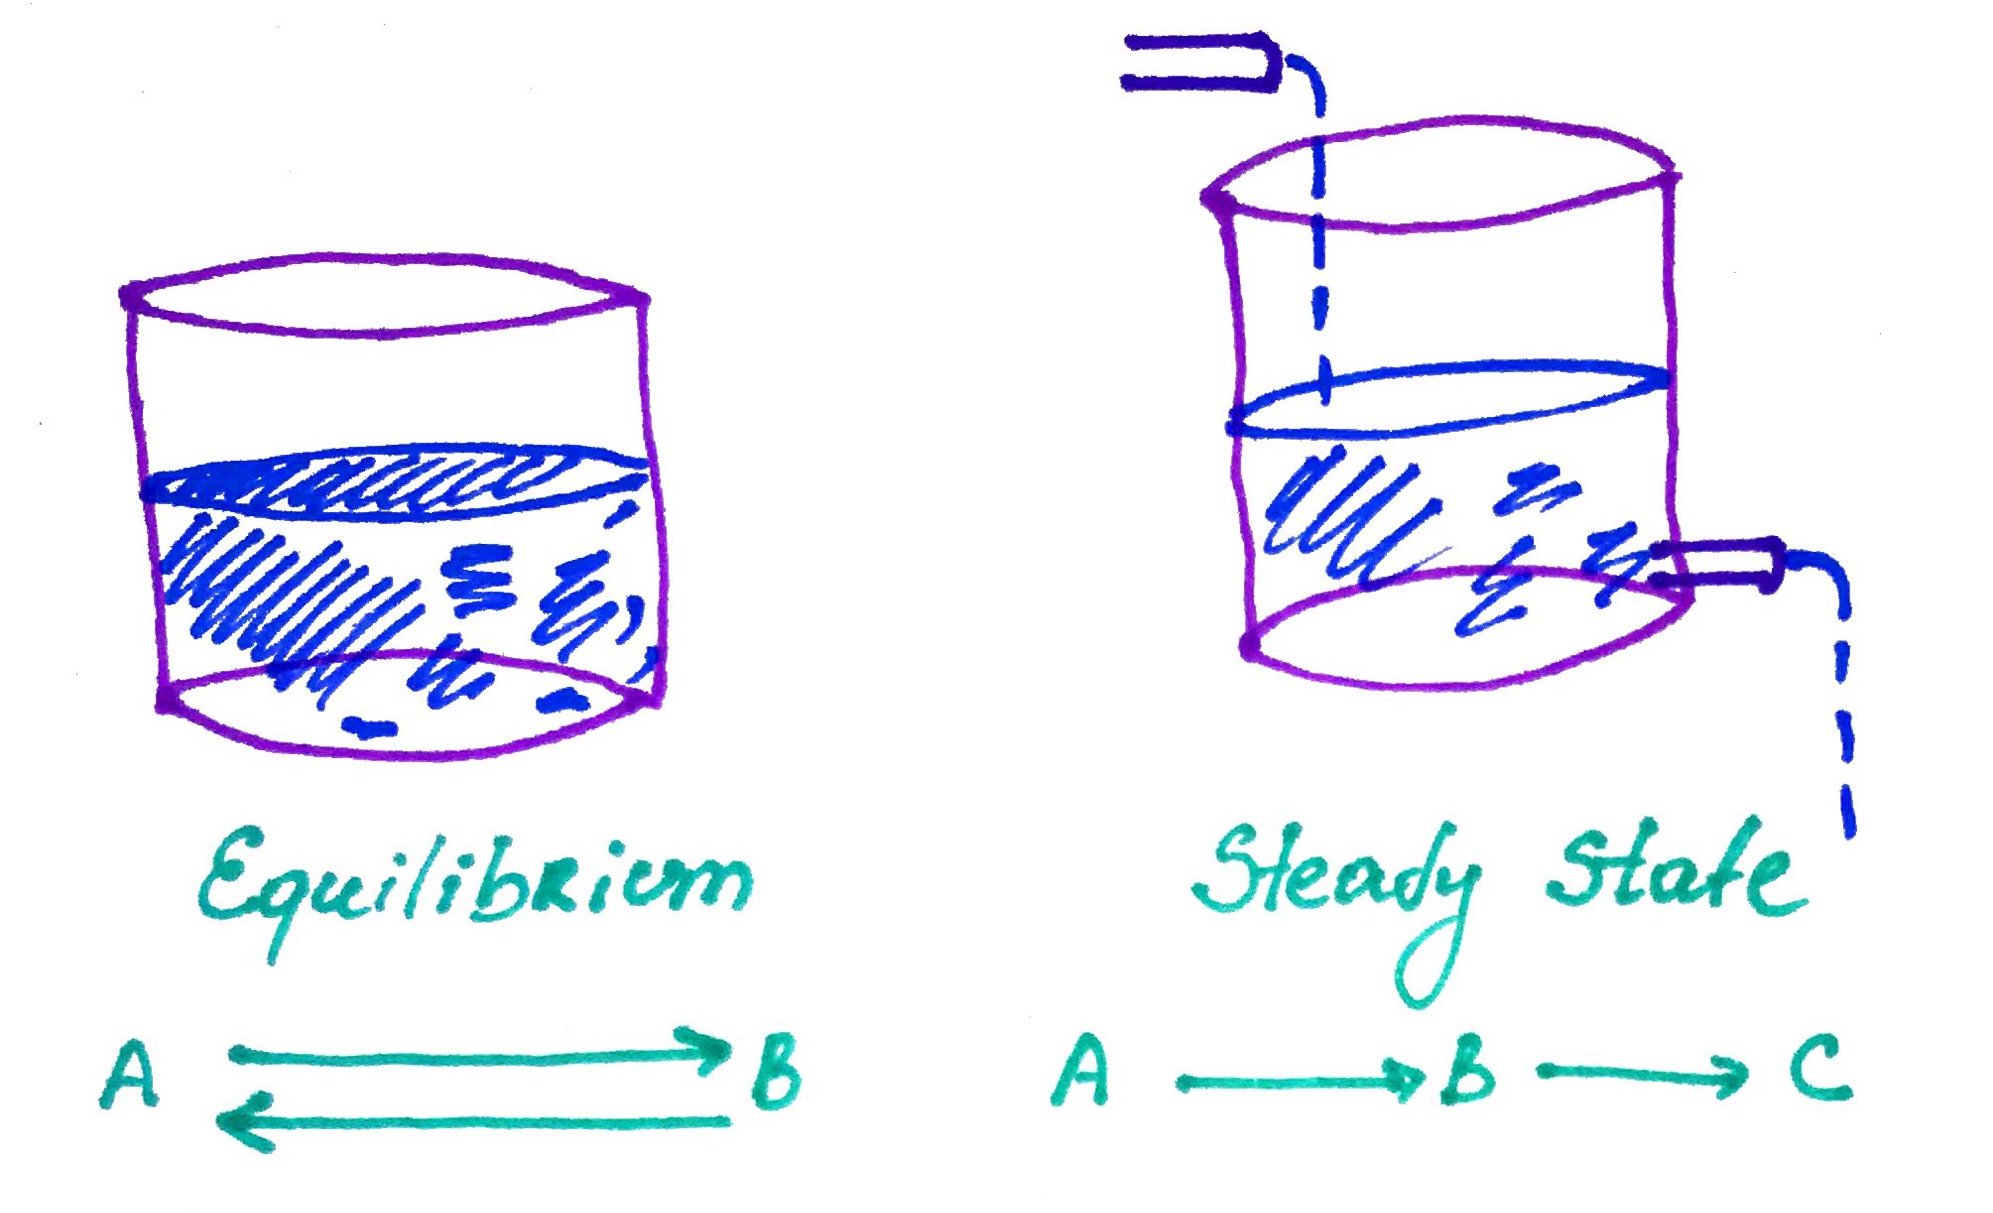 Equilibrium
A ⇄ B
Steady State
A → B → C